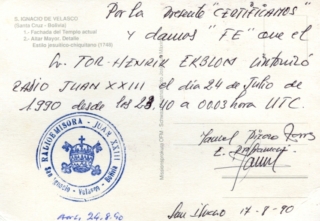 S. IGNACIO DE VELASCO
(Santa Cruz - Bolivia)
1.- Fachada del Templo actual
2.- Altar Mayor. Detalle
Estilo pseudico-chiquitano (1748)
Por la presente "CERTIFICAMOS"
y damos "FE" que el
Sr. TOR-HENRIK EKBLOM sintonizó
RADIO JUAN XXIII el día 24 de Julio de
1990 desde las 23.40 a 0003 hora UTC.
RADIOEMISORA JUAN XXIII
San Ignacio - Velasco - Bolivia
San Ignacio 17-8-90
24.8.90